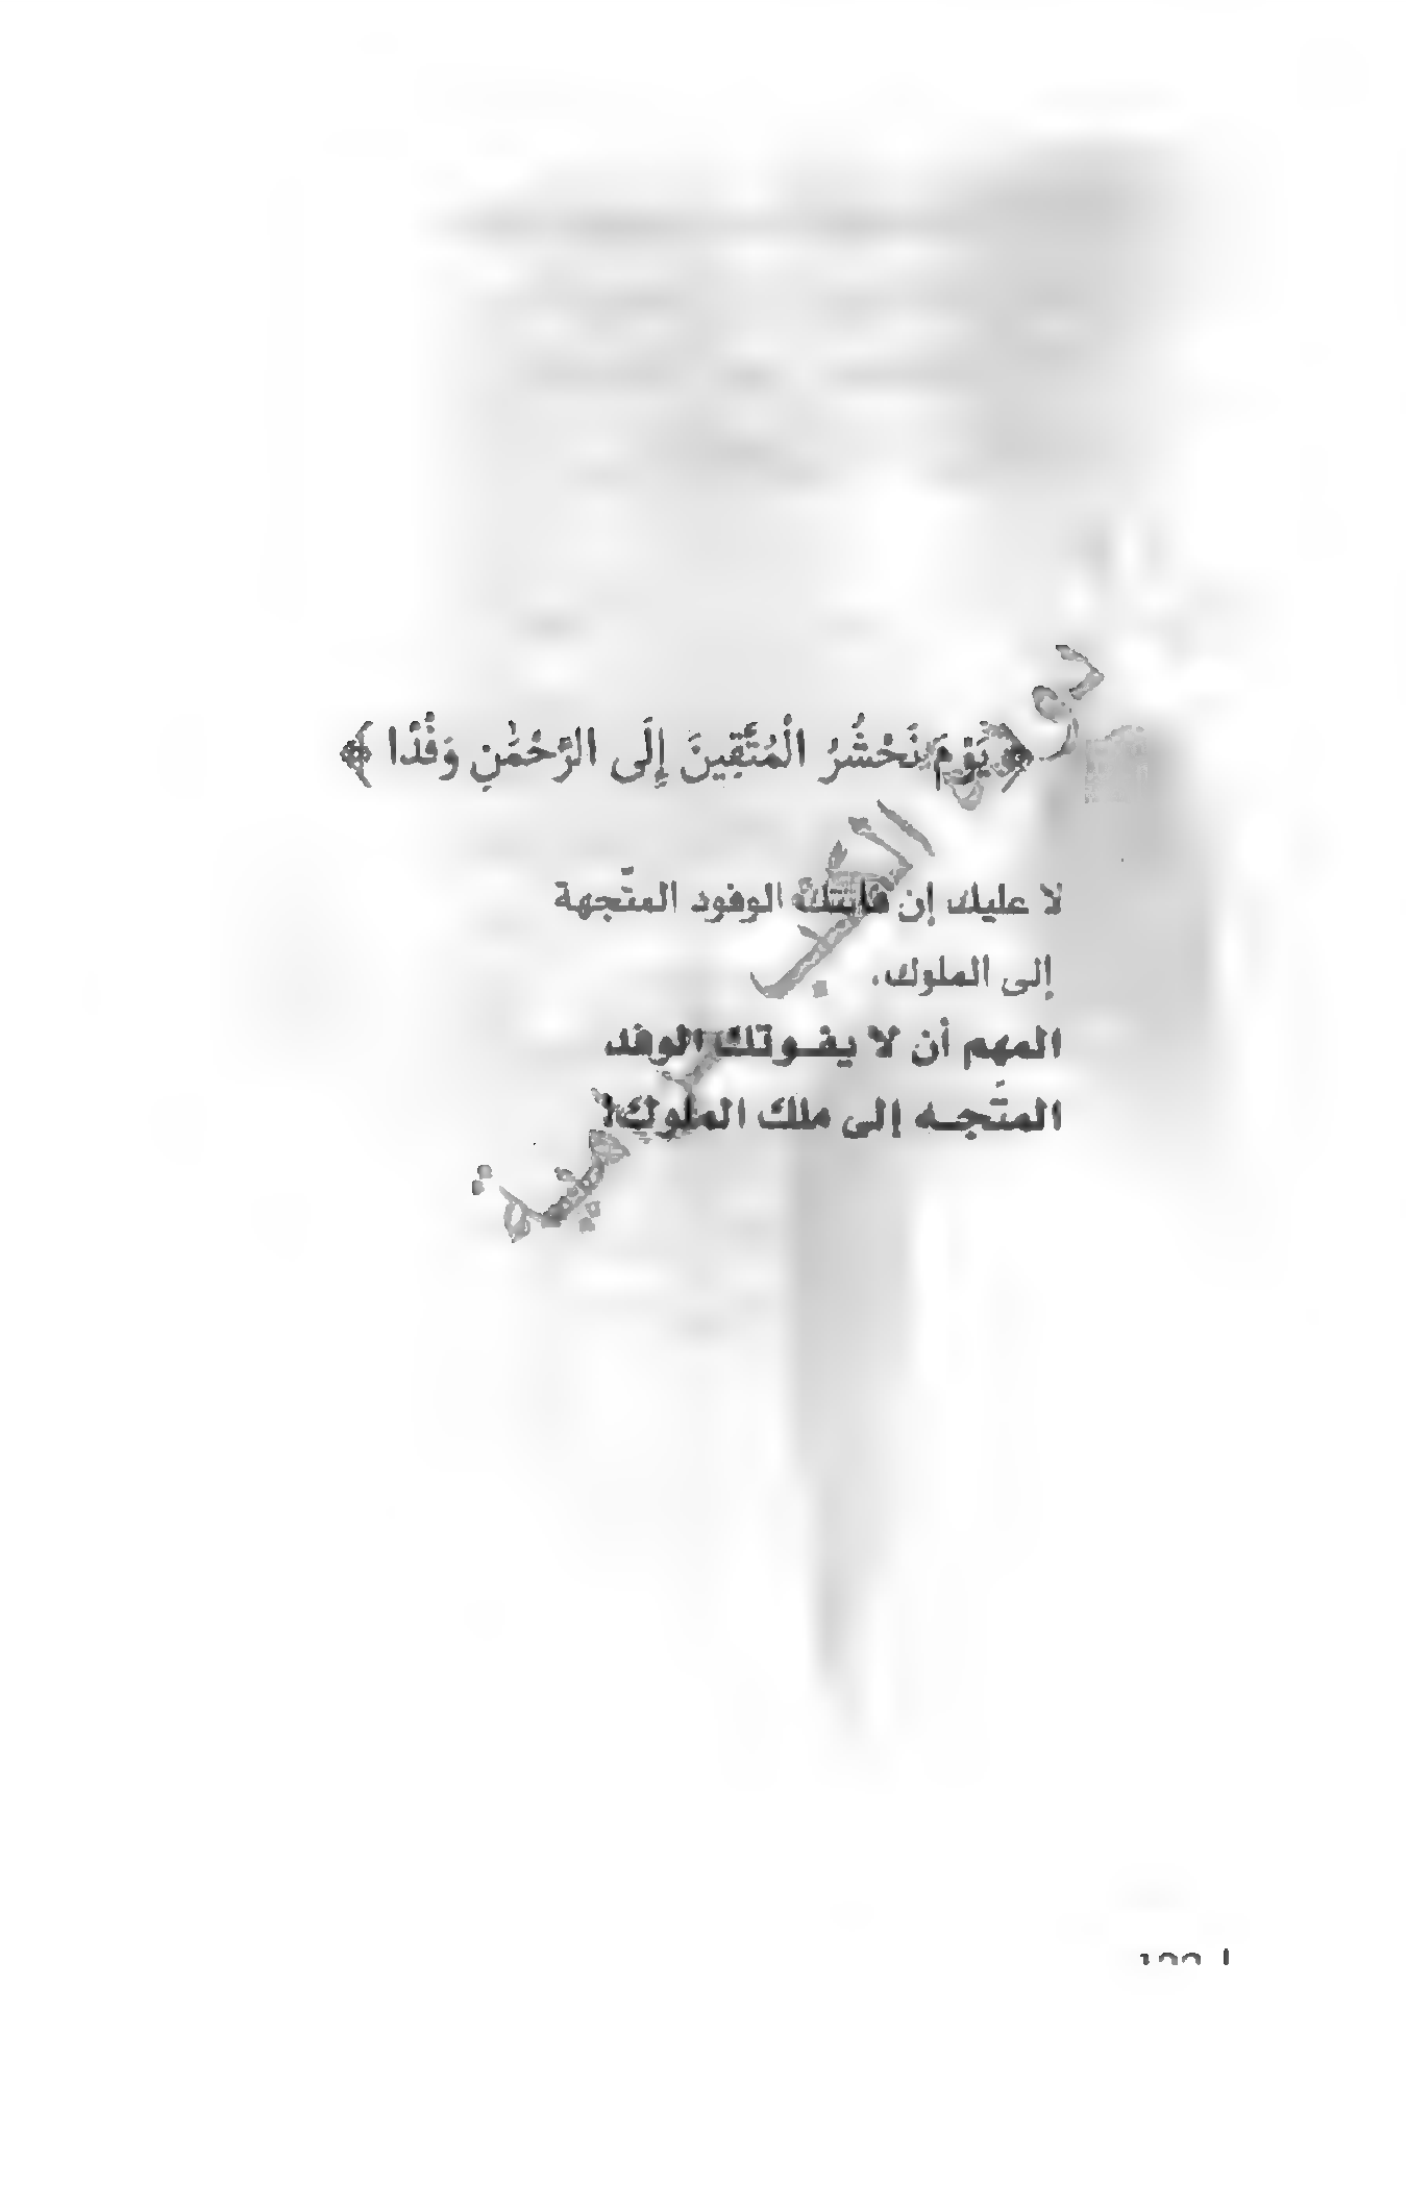 ﴿ يَوْمَ نَحْشُرُ الْمُتَّقِينَ إِلَى الرَّحْمَٰنِ وَفْدًا ﴾
لا عليك إن فاتتك الوفود المتّجهة
إلى الملوك،
المهم أن لا يفـوتك الوفد
المتّجـه إلى ملك الملوك!